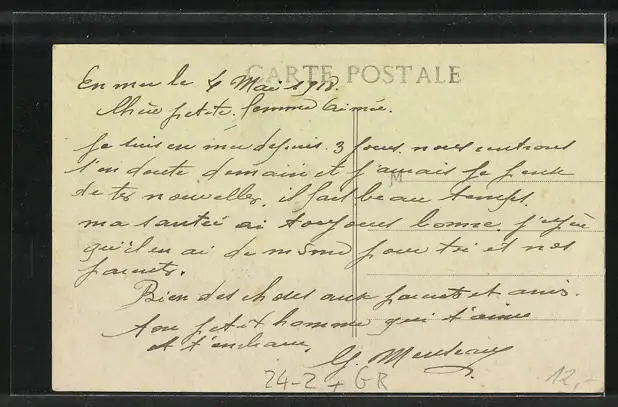 CARTE POSTALE
En mer le 4 Mai 1918.
Chère petite femme aimée.
Je suis en mer depuis 3 jours. nous rentrons
demain et jamais je
de tes nouvelles. il fait beau temps.
ma santée ai toujours bonne. j'espère
qu'il en ai de même pour toi et nos
parents.
M
Bien des choses aux parents et amis.
Ton petit homme qui t'aime
et t'embrasse,
G.
24-2 + GR
12,-